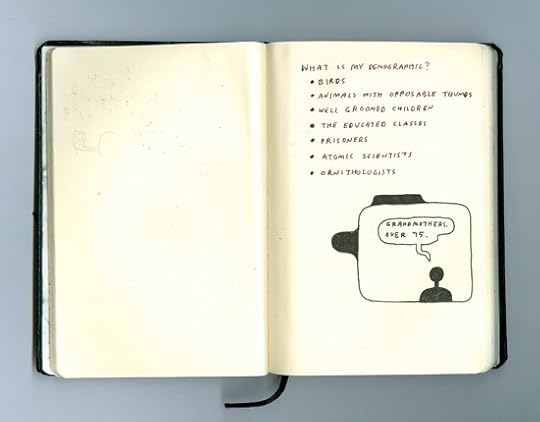 WHAT IS MY DEMOGRAPHIC?
• BIRDS
• ANIMALS WITH OPPOSABLE THUMBS
• WELL GROOMED CHILDREN
• THE EDUCATED CLASSES
• PRISONERS
• ATOMIC SCIENTISTS
• ORNITHOLOGISTS
GRANDMOTHERS.
OVER 75.